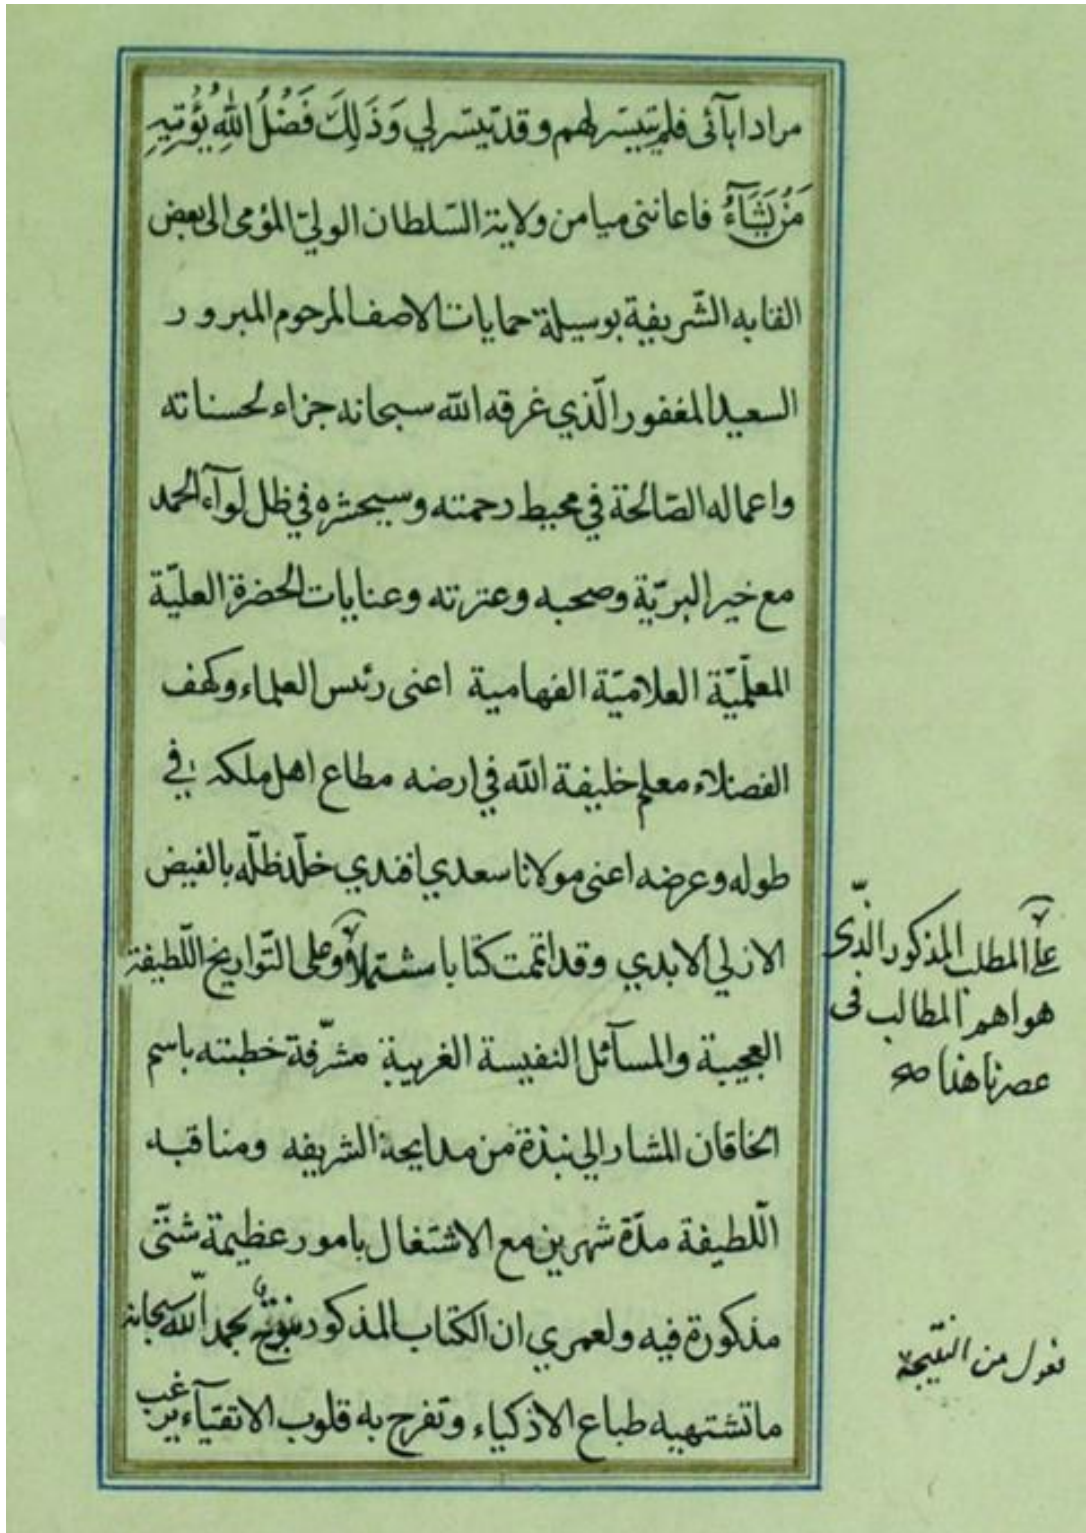 مراد ابآئى فلم يتيسّر لهم و قد تيسّر لي وَذَلِكَ فَضْلُ اللهِ يُؤْتِيهِ
مَنْ يَشَآءُ فاعانني ميامن ولاية السّلطان الوليّ المؤمى الى بعض
القابه الشّريفية بوسيلة حمايات الاصف المرحوم المبرور
السعيد المغفور الّذي غرقه الله سبحانه جزاء لحسناته
واعماله الصّالحة في محيط رحمته وسيحشره في ظل لوآء الحمد
مع خير البريّة وصحبه وعترته وعنايات الحضرة العليّة
المعلّميّة العلاميّة الفهامية اعنى رئيس العلماء وكهف
الفضلاء معلم خليفة الله في ارضه مطاع اهل ملكه في
طوله وعرضه اعنى مولانا سعدي افندي خلّد ظلّه بالفيض
الازلي الابدي وقد اتممت كتابا مشتملاً وعلى التّواريخ اللّطيفة
العجيبة والمسآئل النفيسة الغريبة مشرّفة خطبته باسم
الخاقان المشار الي نبذة من مدايحه الشريفه ومناقبه
الّلطيفة مدّة شهرين مع الاشتغال بامور عظيمة شتّى
مذكورة فيه ولعمري ان الكتاب المذكور بحمد الله سبحانه
ما تشتهيه طباع الاذكياء وتفرح به قلوب الاتقيآء يرغب
على المطلب المذكور الّذى
هو اهم المطالب فى
عصرنا هذا صح
من النتيجة